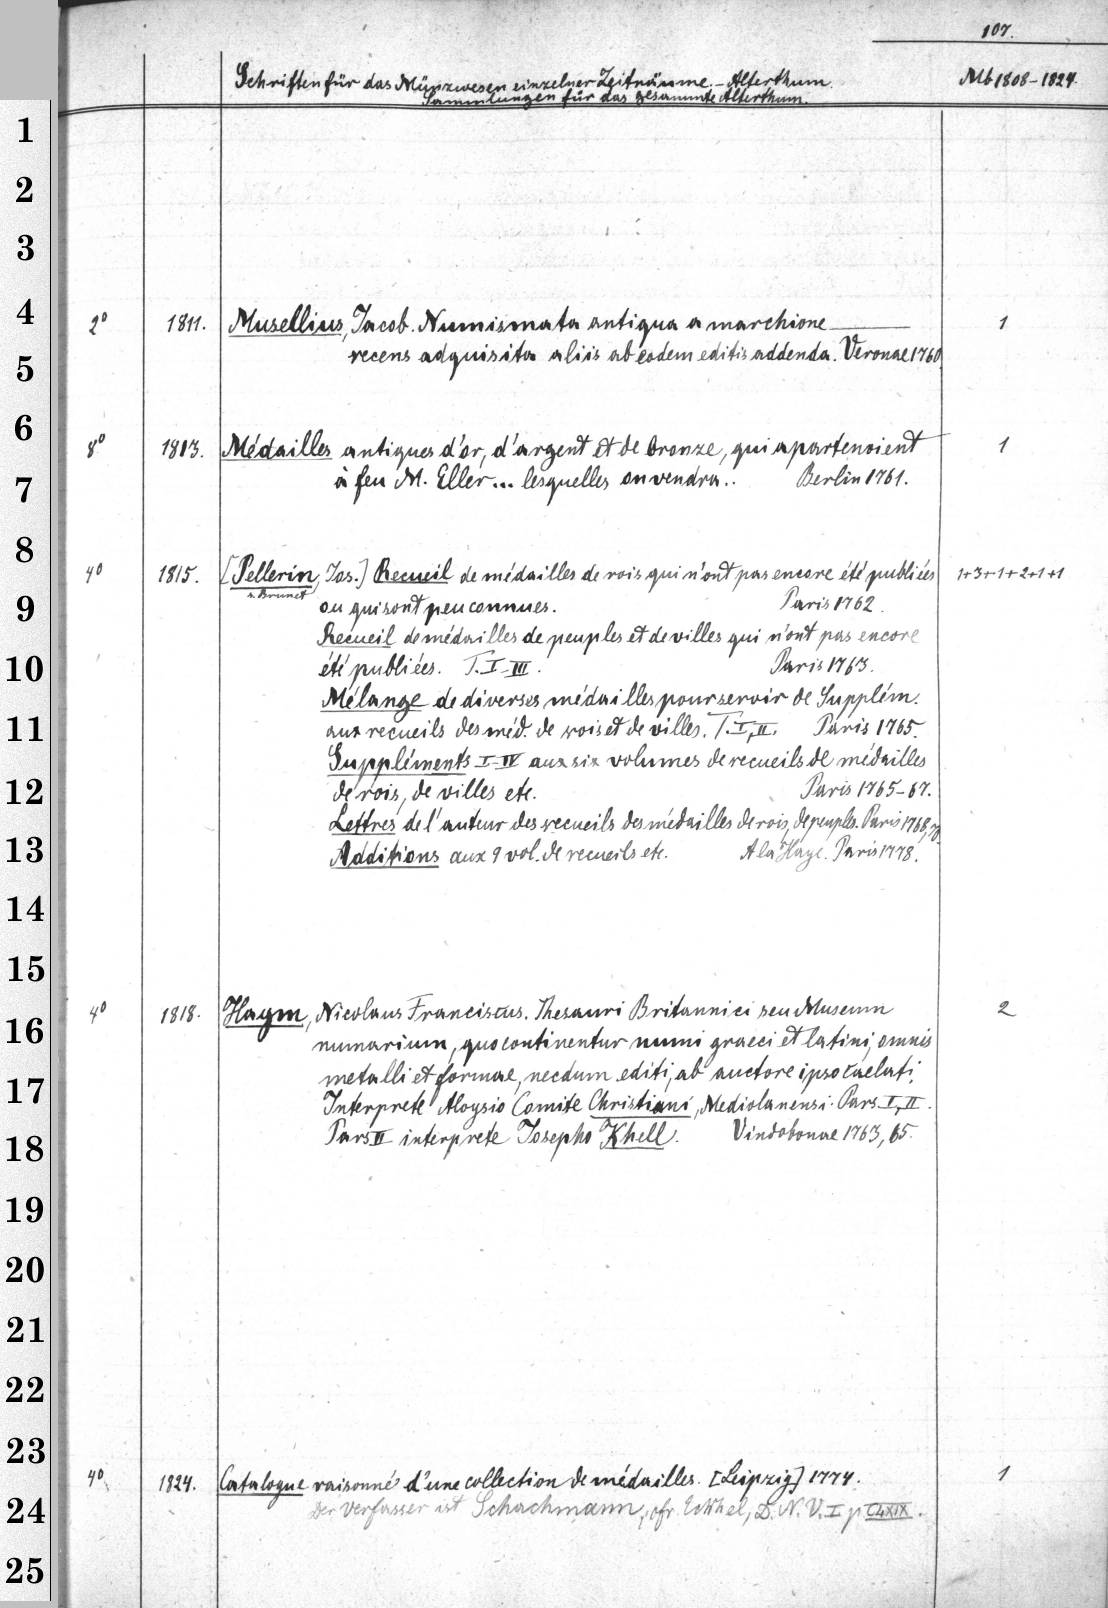 107.
Schriften für das Münzwesen einzelner Zeiträume. – Alterthum.
Sammlungen für das gesammte Alterthum.
Mb 1808–1824.
1
2
3
4
2° 1811. Musellius, Jacob. Numismata antiqua a marchione 1
recens adquisita aliis ab eodem editis addenda. Veronae 1760.
5
6
8° 1813. Médailles antiques d'or, d'argent et de bronze, qui apartenoient 1
à feu M. Eller... lesquelles on vendra.. Berlin 1761.
7
8
4° 1815. [Pellerin, Jos.] Recueil de médailles de rois qui n'ont pas encore été publiées 1+3+1+2+1+1
s. Brunet
ou qui sont peu connues. Paris 1762.
9
Recueil de médailles de peuples et de villes qui n'ont pas encore
été publiées. T. I–III. Paris 1763.
10
Mélange de diverses médailles pour servoir de Supplém.
aux recueils des méd. de rois et de villes. T. I, II. Paris 1765.
11
Suppléments I–IV aux six volumes de recueils de médailles
de rois, de villes etc. Paris 1765–67.
12
Lettres de l'auteur des recueils des médailles de rois, de peuples. Paris 1768, 70.
Additions aux 9 vol. de recueils etc. A la Haye. Paris 1778.
13
14
15
4° 1818. Haym, Nicolaus Franciscus. Thesauri Britannici seu Museum 2
numarium, quo continentur numi graeci et latini, omnis
16
metalli et formae, necdum editi, ab auctore ipso caelati.
17
Interprete Aloysio Comite Christiani, Mediolanensi. Pars I, II.
Pars II interprete Josepho Khell. Vindobonae 1763, 65.
18
19
20
21
22
23
4° 1824. Catalogue raisonné d'une collection de médailles. [Leipzig] 1774. 1
Der Verfasser ist Schachmann, cfr. Eckhel, D. N. V. I p
24
25